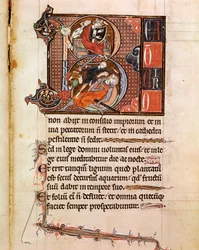 B
non abijt in consilio impiorum et in
uia peccatorum ñ stetit: et in cathedra
pestilentie ñ sedit.
Sed in lege domini uoluntas eius et in le
ge eius meditabitur die ac nocte.
Et erit tamquam lignum quod plantatum
est secus decursus aquarum: quod fructum
suum dabit in tempore suo.
Et folium ei ñ defluet: et omnia quecumque
faciet semper prosperabuntur.